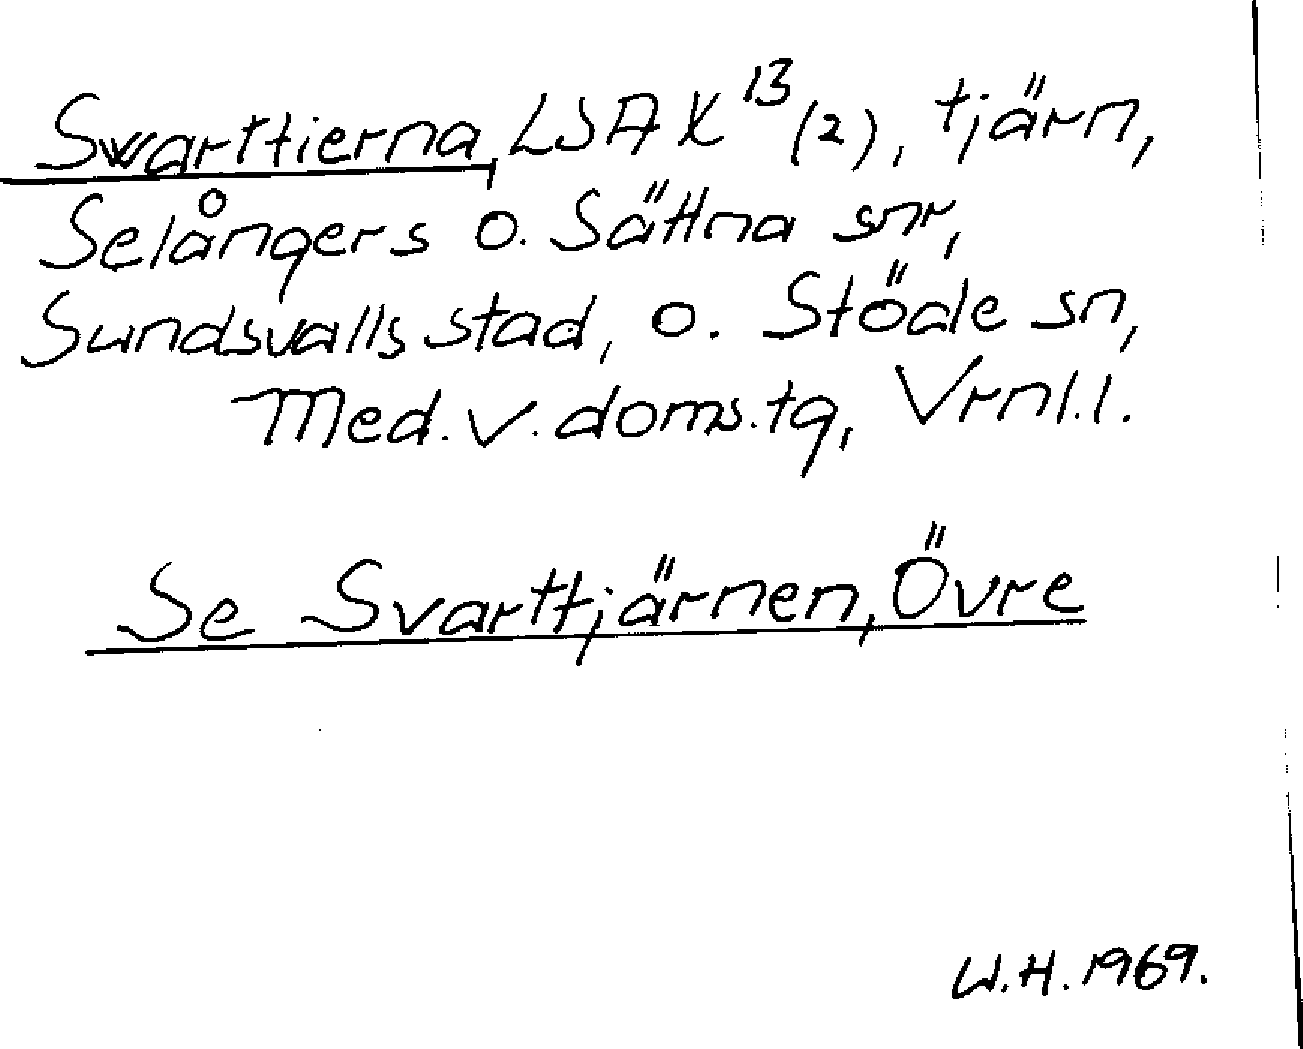 Swarttierna, LSA X¹³ (2), tjärn,
Selångers o. Sättna snr,
Sundsvalls stad, o. Stöde sn,
Med. v. doms. tg, Vrnl. l.
Se Svarttjärnen, Övre
W.H. 1969.